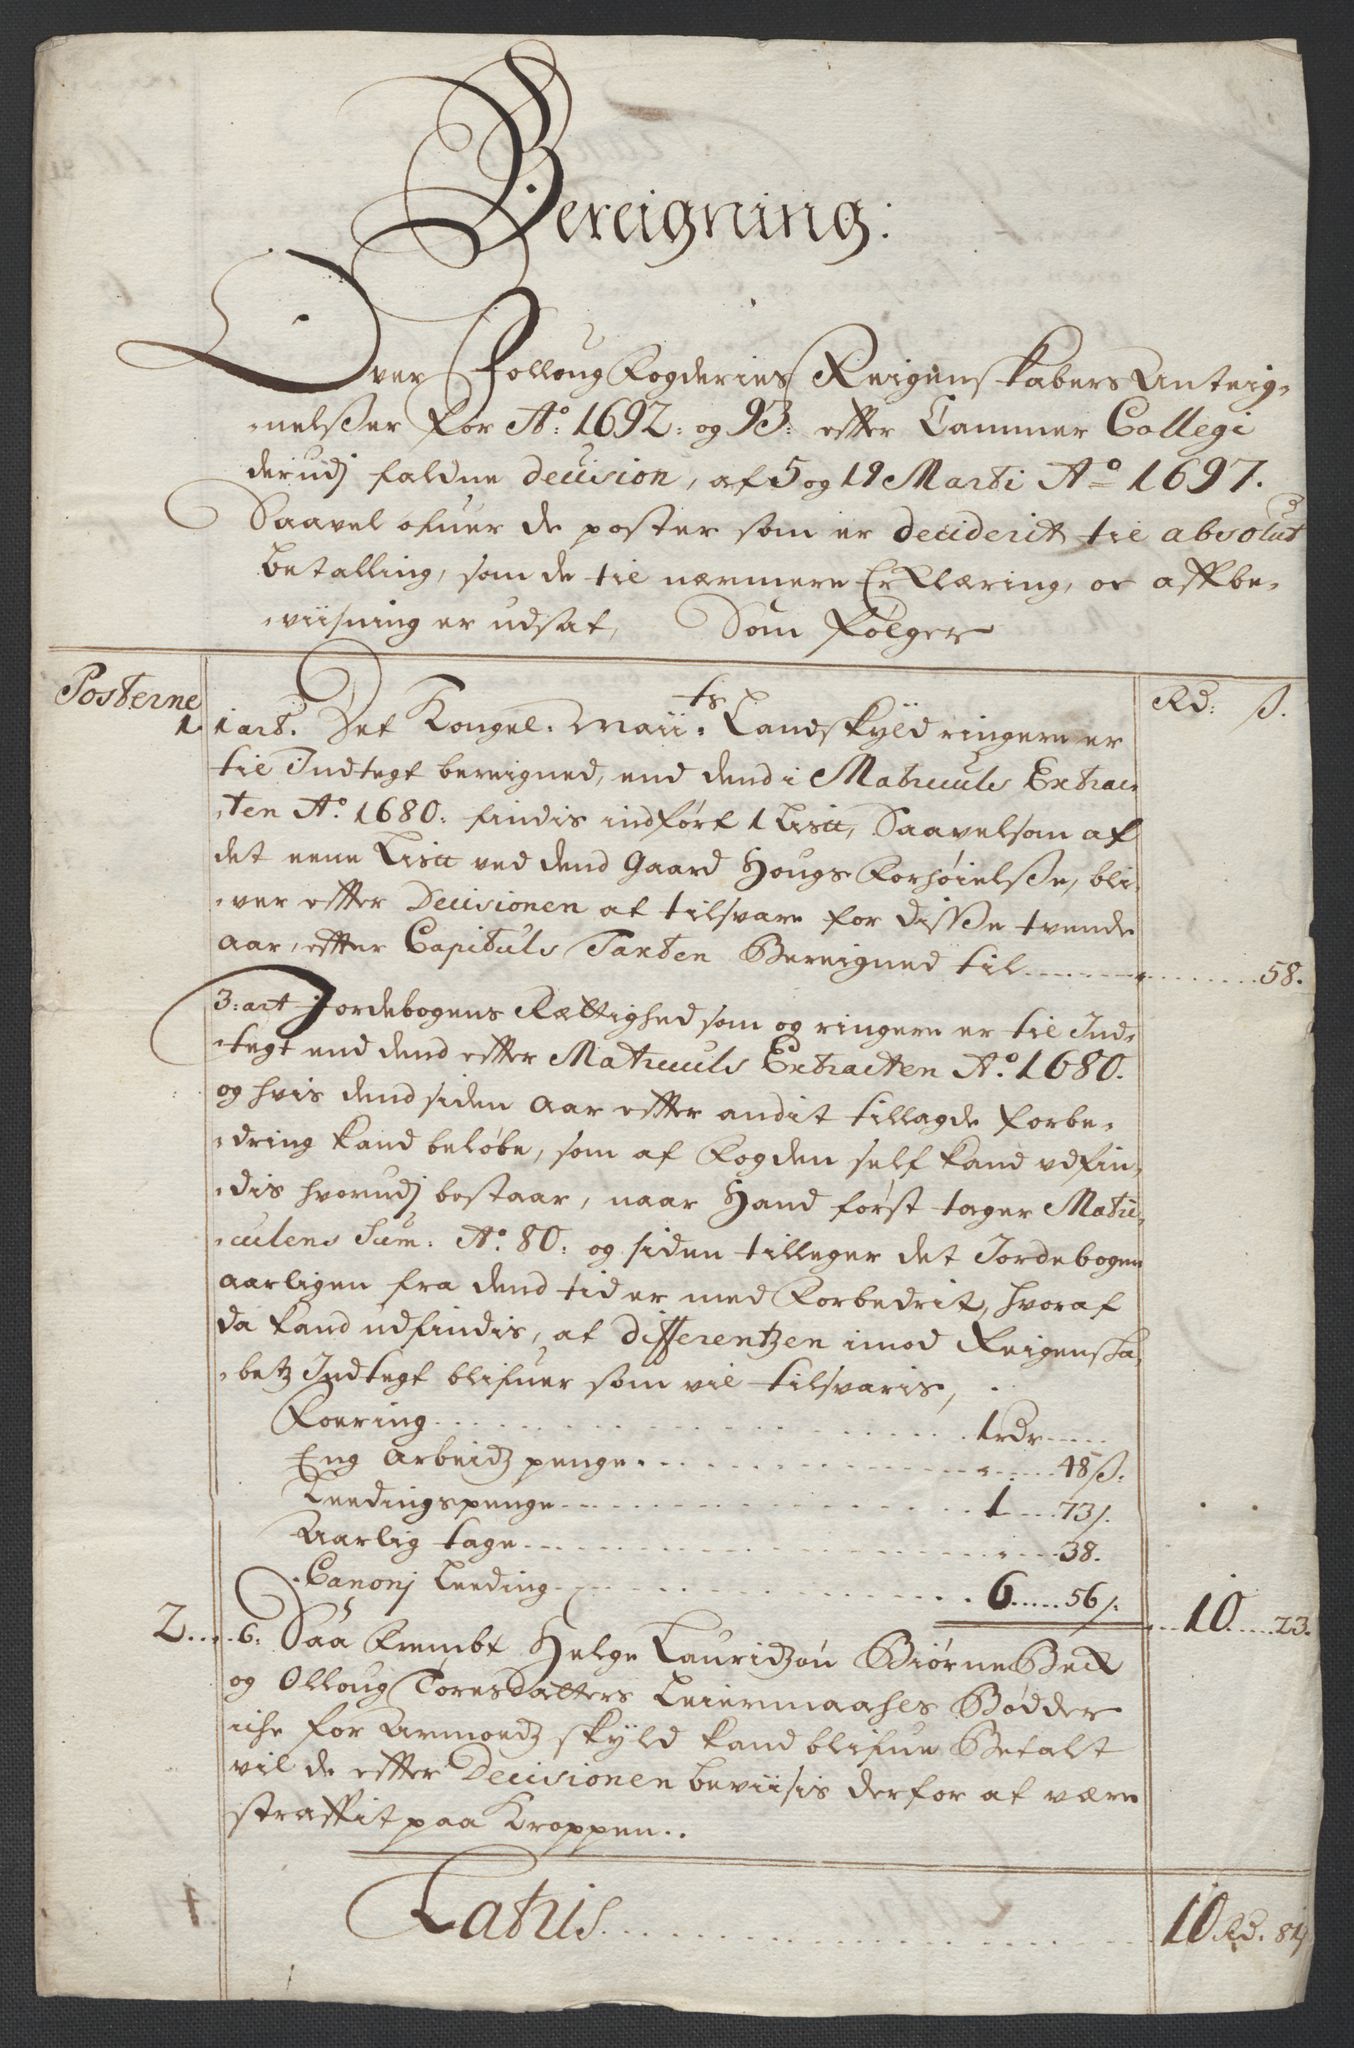 Bereigning:
Over Folloug Fogderies Reigenskabers Anteig-
-nelßer for Ao: 1692: og 93: efter Cammer Collegi
derudj faldne decision, af 5 og 19 Marti Ao 1697.
Saavel ofuer de poster som er deciderit til absolut
betalling, som de til nærmere Erklæring, oc affbe-
-viisning er udsat, Som følger
Posterne Rd: ß.
1 1 art. Det Kongel. Maii:ts Landskyld ringere er
til Indtegt bereigned, end dend i Matriculs Extrac-
-ten Ao: 1680: findis indført 1 Lisu, Saavelsom af
det eene Lisu ved dend Gaard Hougs Forhøielße, bli-
-ver efter Decisionen at tilsvare for disße tvende
aar, efter Capituls Taxten Bereigned til 58.
3: art Jordebogens Rættighed som og ringere er til Ind-
-tegt end dend efter Matriculs Extracten Ao. 1680.
og hvis dend siden Aar efter andit tillagde forbe-
-dring kand beløbe, som af Fogden self kand udfin-
-dis hvorudj bestaar, naar Hand først tager Matri-
-culens Sum: Ao. 80: og siden tilleger det Jordebogen
aarligen fra dend tid er med Forbedrit, hvoraf
da kand udfindis, at differentzen imod Reigenska-
-betz Indtegt blifuer som vil tilsvaris,
Foering 1 rdr
Eng Arbeidz penge 48 ß:
Leedingspenge 1 73 ß.
Aarlig tage 38.
Canonj Leeding 6 56 ß: 10 23.
2 6: Saa frembt Helge Lauridzøn Biørnebeck
og Olloug Toresdatters Leiermaahles Bødder
iche for Armoedz skyld kand blifue Betalt
vil de efter Decisionen beviisis derfor at være
straffit paa Kroppen..
Latus 10 Rd. 81 ß